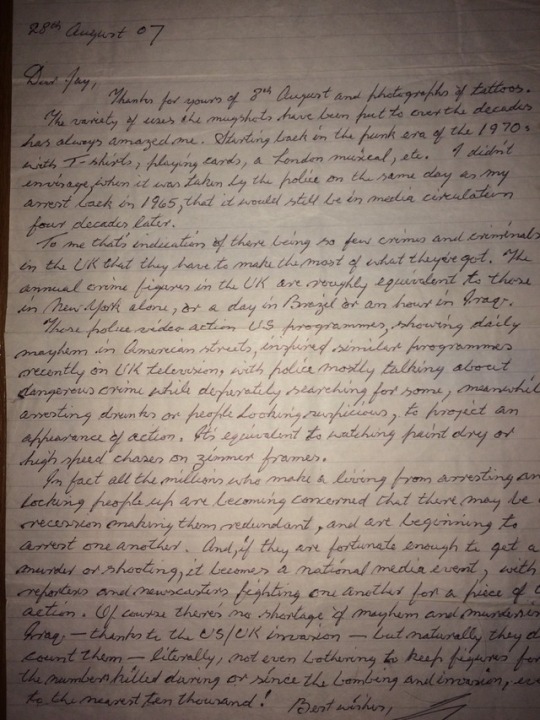 28th August 07
Dear Jay,
Thanks for yours of 8th August and photographs of tattoos.
The variety of uses the mugshots have been put to over the decades
has always amazed me. Starting back in the punk era of the 1970s
with T-shirts, playing cards, a London musical, etc. I didn't
envisage, when it was taken by the police on the same day as my
arrest back in 1965, that it would still be in media circulation
four decades later.
To me that's indication of there being so few crimes and criminals
in the UK that they have to make the most of what they've got. The
annual crime figures in the UK are roughly equivalent to those
in New York alone, or a day in Brazil or an hour in Iraq.
Those police video action US programmes, showing daily
mayhem in American streets, inspired similar programmes
recently on UK television, with police mostly talking about
dangerous crime while desperately searching for some, meanwhil
arresting drunks or people looking suspicious, to project an
appearance of action. It's equivalent to watching paint dry or
high speed chases on zimmer frames.
In fact all the millions who make a living from arresting an
locking people up are becoming concerned that there may be
recession making them redundant, and are beginning to
arrest one another. And, if they are fortunate enough to get a
murder or shooting, it becomes a national media event, with
reporters and newscasters fighting one another for a piece of
action. Of course there's no shortage of mayhem and murders in
Iraq, — thanks to the US/UK invasion — but naturally they d
count them — literally, not even bothering to keep figures for
the numbers killed during or since the bombing and invasion,
to the nearest ten thousand!
Best wishes,